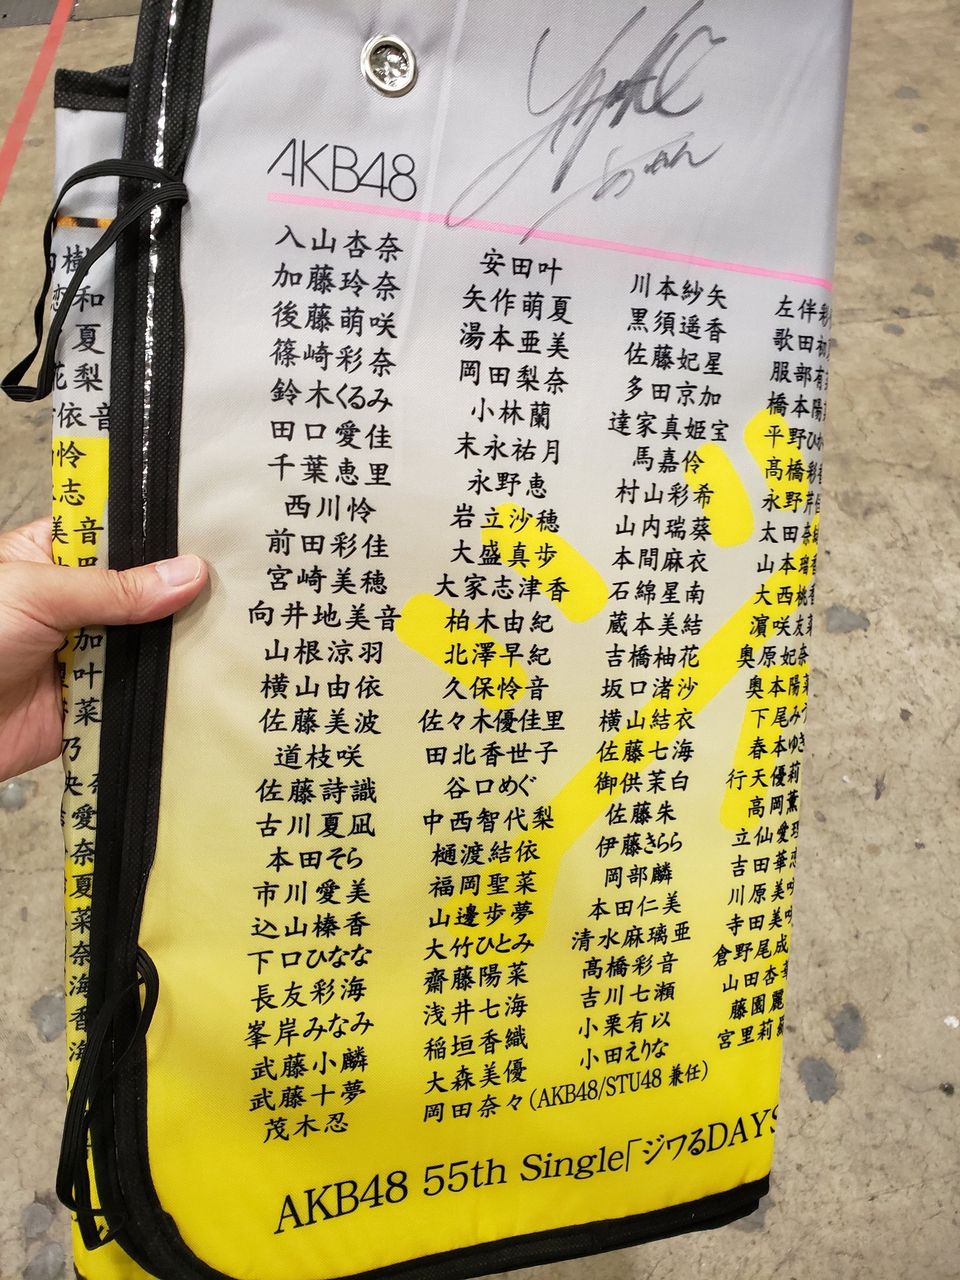 AKB48
入山杏奈
加藤玲奈
後藤萌咲
篠崎彩奈
鈴木くるみ
田口愛佳
千葉恵里
西川怜
前田彩佳
宮崎美穂
向井地美音
山根涼羽
横山由依
佐藤美波
道枝咲
佐藤詩識
古川夏凪
本田そら
市川愛美
込山榛香
下口ひなな
長友彩海
峯岸みなみ
武藤小麟
武藤十夢
茂木忍
安田叶
矢作萌夏
湯本亜美
岡田梨奈
小林蘭
末永祐月
永野恵
岩立沙穂
大盛真歩
大家志津香
柏木由紀
北澤早紀
久保怜音
佐々木優佳里
田北香世子
谷口めぐ
中西智代梨
樋渡結依
福岡聖菜
山邊歩夢
大竹ひとみ
齋藤陽菜
浅井七海
稲垣香織
大森美優
岡田奈々(AKB48/STU48 兼任)
川本紗矢
黒須遥香
佐藤妃星
多田京加
達家真姫宝
馬嘉伶
村山彩希
山内瑞葵
本間麻衣
石綿星南
蔵本美結
吉橋柚花
坂口渚沙
横山結衣
佐藤七海
御供茉白
佐藤朱
伊藤きらら
岡部麟
本田仁美
清水麻璃亜
髙橋彩音
吉川七瀬
小栗有以
小田えりな
左伴彩
歌田初
服部有
橋本陽
平野ひか
高橋彩
永野芹
太田奈
山本瑠
大西桃
濵咲友
奥原妃奈
奥本陽
下尾み
春本ゆき
行天優莉
高岡薫
立仙愛理
吉田華恋
川原美咲
寺田美咲
倉野尾成
山田杏
藤園麗
宮里莉
AKB48 55th Single「ジワるDAYS